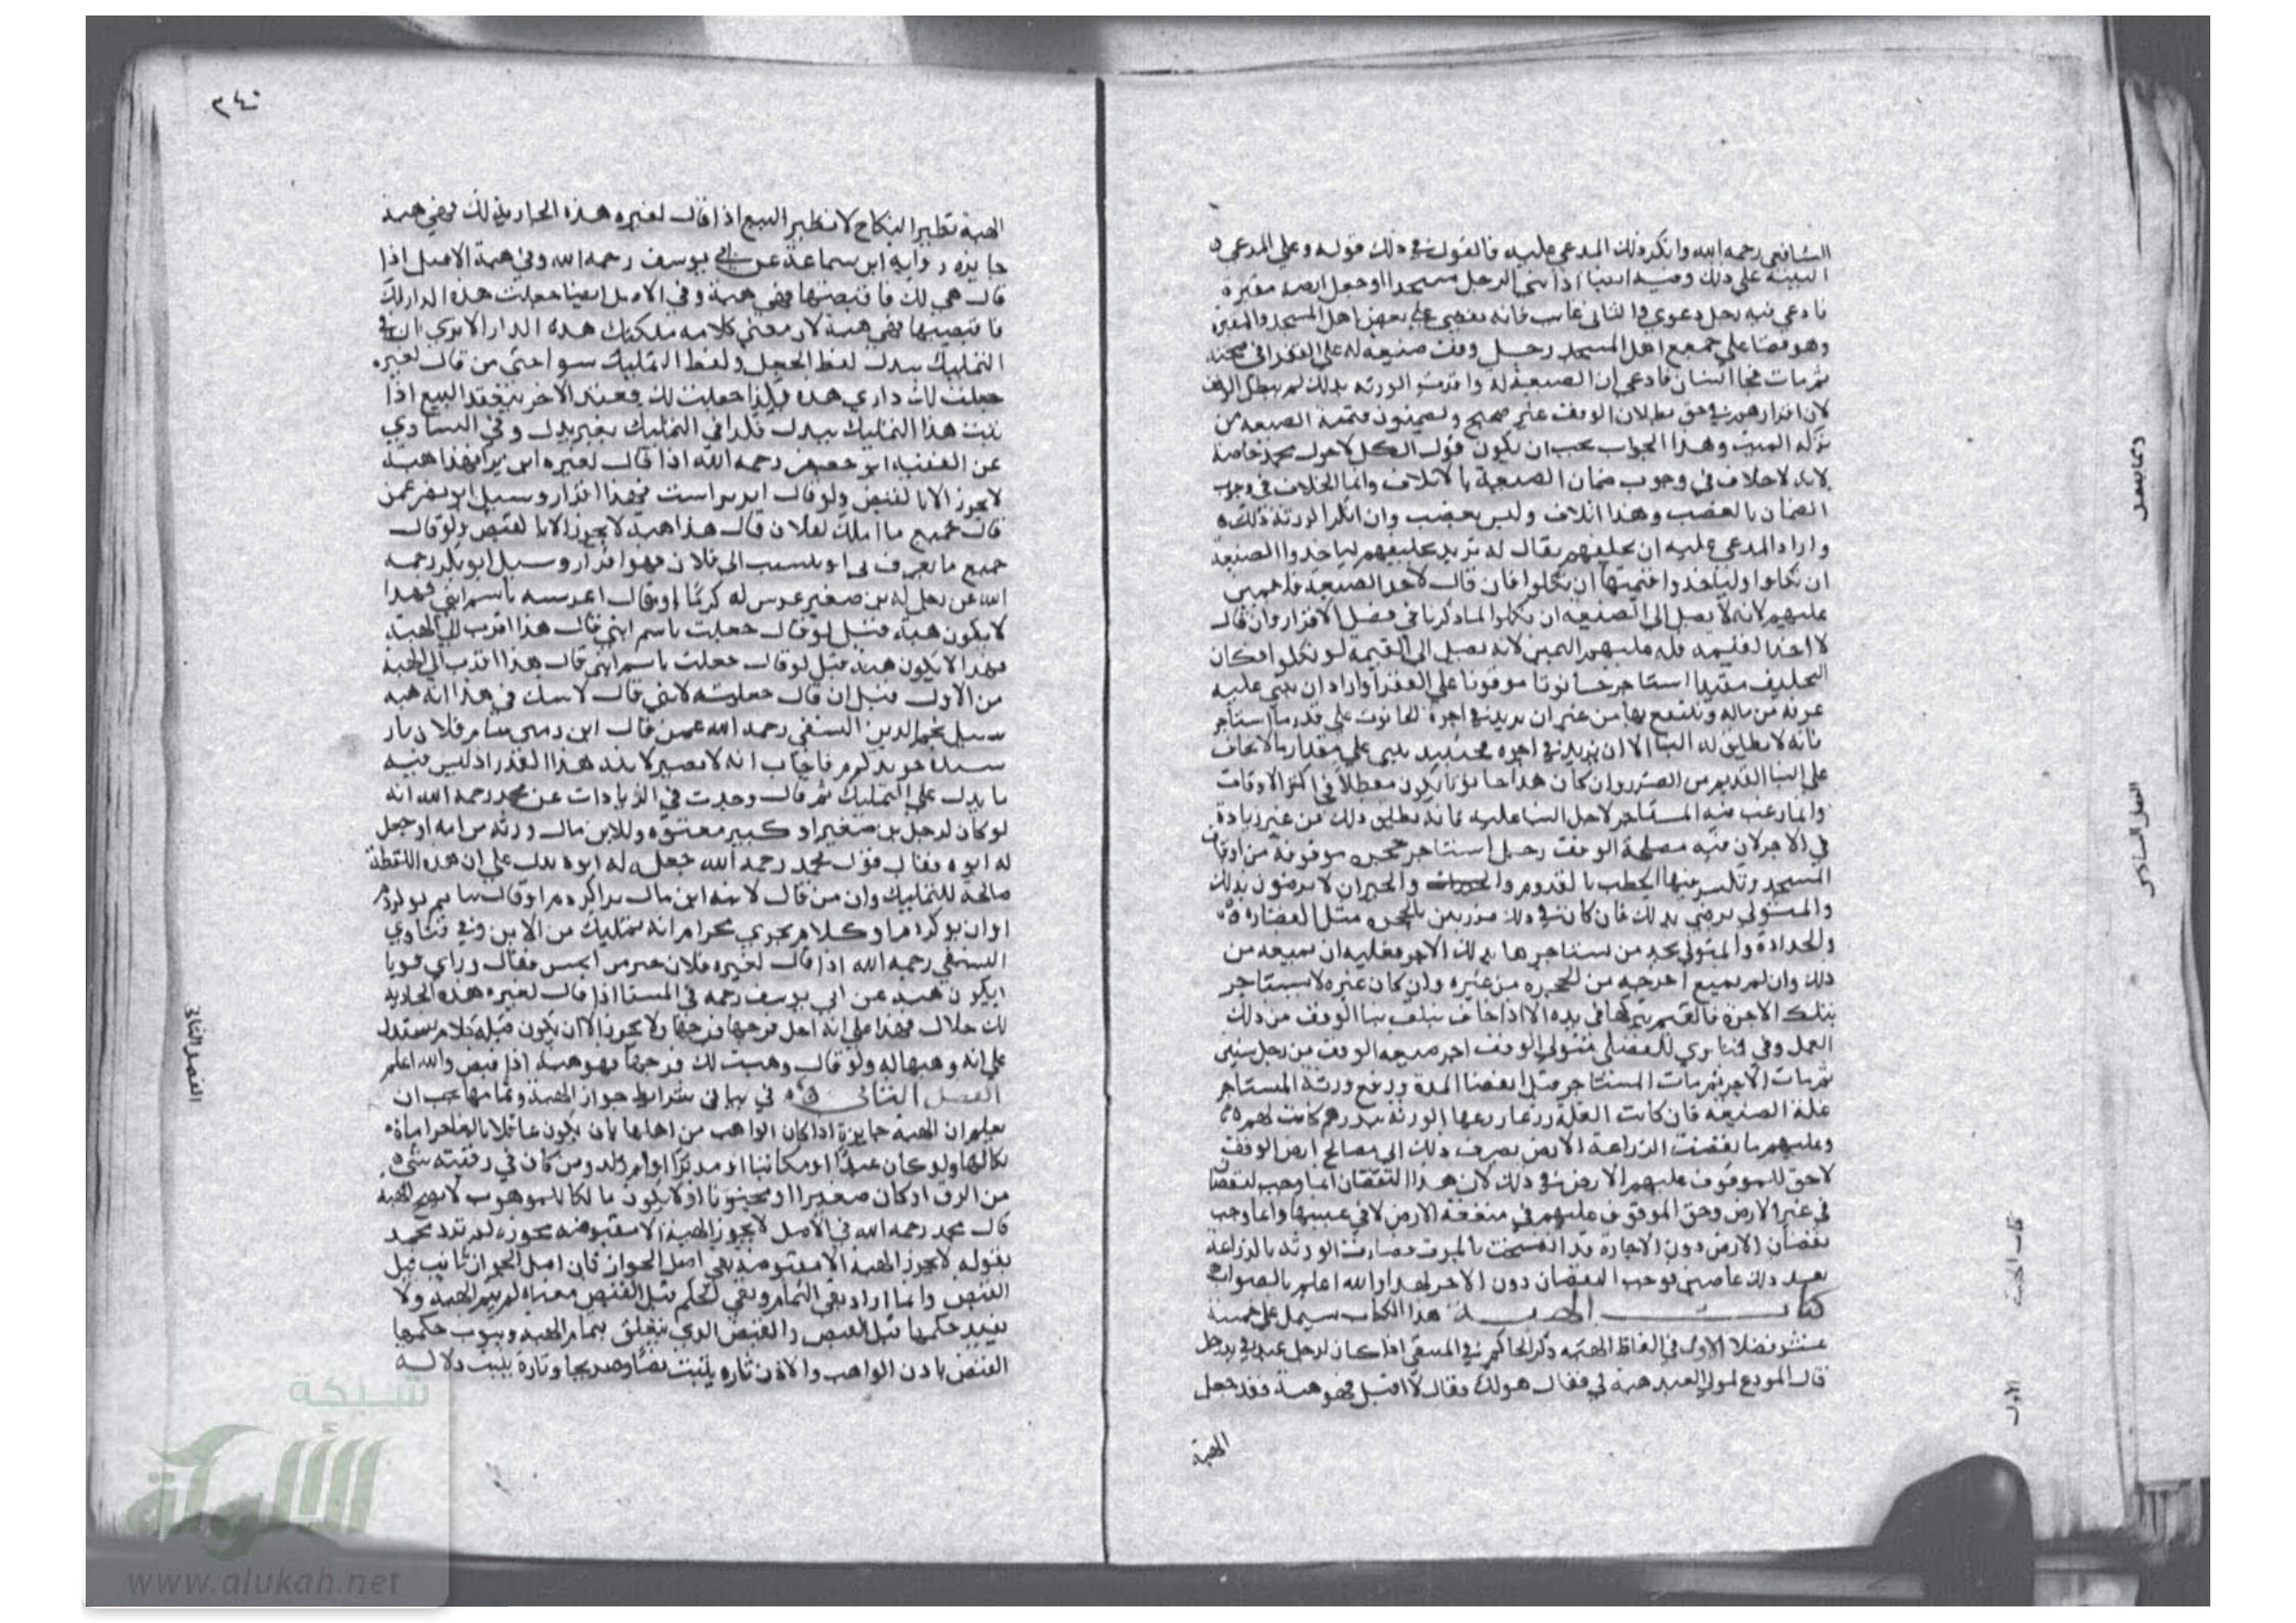 الشافعي رحمه الله وانكر ذلك المدعي عليه فالقول في ذلك قوله وعلي المدعي
البينة علي ذلك وفيه ايضا اذا بني الرجل مسجدا او جعل ارضه مقبرة
فادعي فيه رجل دعوي والثاني غايب فانه يقضي علي بعض اهل المسجد والمقبرة
وهو قضا علي جميع اهل المسجد رجل وقف ضيعة له علي الفقرا في صحته
ثم مات فجا انسان فادعي ان الضيعة له واقرت الورثه بذلك لم يبطل الوقف
لان اقرارهم في حق بطلان الوقف غير صحيح ويضمنون قيمة الضيعه من
تركه الميت وهذا الجواب يجب ان يكون قول الكل لا قول محمد خاصة
لانه لا خلاف في وجوب ضمان الضيعة بالاتلاف وانما الخلاف في وجوب
الضمان بالغصب وهذا اتلاف وليس بغصب وان انكر الورثة ذلك
واراد المدعي عليه ان يحلفهم يقال له تريد تحليفهم لياخذوا الضيعة
ان نكلوا وليأخذوا قيمتها ان نكلوا فان قال لاخذ الضيعة فلا يمين
عليهم لانه لا يصل الي الضيعه ان نكلوا لما ذكرنا في فصل الاقرار وان قال
لاخذ القيمه فله عليهم اليمين لانه يصل الي القيمة لو نكلوا فكان
التحليف مفيدا استاجر حانوتا موقوفا علي الفقرا واراد ان يبني عليه
غرفة من ماله وينتفع بها من غير ان يزيد في اجرة الحانوت علي قدر ما استاجر
فانه لا يطلق له البنا الا ان يزيد في اجره فحينئذ يبني علي مقدار ما لا يخاف
علي البنا القديم من الضرر وان كان هذا حانوتا يكون معطلا في اكثر الاوقات
وانما رغب فيه المستاجر لاجل البنا عليه فانه يطلق ذلك من غير زيادة
في الاجر لان فيه مصلحة الوقف رجل استاجر حجره موقوفة من اوقاف
المسجد وتكسر فيها الحطب بالقدوم والجيران لا يرضون بذلك
والمتولي يرضي بذلك فان كان في ذلك ضرر بين بالحجره مثل القصارة
والحدادة والمتولي يجد من يستاجرها بذلك الاجر فعليه ان يمنعه من
ذلك وان لم يمتنع اخرجه من الحجره من غيره وان كان غيره لا يستاجر
بتلك الاجرة فالقيم يتركها في يده الا اذا خاف تلف بنا الوقف من ذلك
العمل وفي فتاوي الفضلي متولي الوقف اجر ضيعه الوقف من رجل سنين
ثم مات الاجر ثم مات المستاجر قبل انقضا المدة وزرع ورثة المستاجر
غلة الضيعة فان كانت الغلة زرعا زرعها الورثة ببذرهم كانت لهم
وعليهم ما نقصت الزراعة الارض يصرف ذلك الي مصالح ارض الوقف
لا حق للموقوف عليهم الارض في ذلك لان هذا النقصان انما وجب لنقصان
في غير الارض وحق الموقوف عليهم في منفعة الارض لا في عينها وانما وجب
نقصان الارض دون الاجارة قد انفسخت بالموت فصارت الورثه بالزراعة
بعد ذلك غاصبين فوجب النقصان دون الاجر لهذا والله اعلم بالصواب
كتاب الهبة هذا الكتاب يشتمل علي خمسة
عشر فصلا الاول في الفاظ الهبه ذكر الحاكم في المنتقي اذا كان لرجل عبد في يد رجل
قال المودع لمولي العبد هبه لي فقال هو لك فقال لا اقبل فهو هبة فقد جعل
الهبة
وما يتصل
الفصل السادس
كتاب الهبة
الاول
٣٤٠
الهبة نظير النكاح لا نظير البيع اذا قال لغيره هذه الجارية لك فهي هبة
جايزه رواية ابن سماعة عن ابي يوسف رحمه الله وفي هبة الاصل اذا
قال هي لك فاقبضها فهي هبة وفي الاصل ايضا جعلت هذه الدار لك
فاقبضها فهي هبة لان معني كلامه ملكتك هذه الدار الا تري ان في
التمليك ببدل لفظ الجعل ولفظ التمليك سوا حتي من قال لغيره
جعلت لك داري هذه بكذا جعلت لك فعند الاخر ينعقد البيع اذا
ثبت هذا التمليك ببدل فكذا في التمليك بغير بدل وفي الفتاوي
عن الفقيه ابو جعفر رحمه الله اذا قال لغيره اين ترا فهذا هبة
لا يجوز الا بالقبض ولو قال اين تراست فهذا اقرار وسيل ابو نصر عمن
قال جميع ما املك لفلان قال هذا هبة لا يجوز الا بالقبض ولو قال
جميع ما يعرف بي او ينسب الي فلان فهو اقرار وسيل ابو بكر رحمه
الله عن رجل له ابن صغير غرس له كرما او يقال اغرسه باسم ابني فهذا
لا يكون هبة قيل لو قال جعلت باسم ابني قال هذا اقرب الي الهبة
فهذا لا يكون هبة قيل لو قال جعلت باسم ابني قال هذا اقرب الي الهبة
من الاول قيل ان قال جعلته لابني قال لا شك في هذا انه هبه
سيل نجم الدين النسفي رحمه الله عمن قال اين زمين بنام فلان
فاجاب انه لا يصير لابنه هذا القدر اذ ليس فيه
ما يدل علي التمليك ثم قال وجدت في الزيادات عن محمد رحمه الله انه
لو كان لرجل ابن صغير او كبير معتوه وللابن مال ورثه من امه او جعل
له ابوه فقال قول محمد رحمه الله جعل له ابوه يدل علي ان هذه اللفظة
صالحة للتمليك وان من قال لابنه اين مال ترا كردم او قال بنام تو كردم
او ان تو كردم او كلام يجري مجراه انه تمليك من الابن وفي فتاوي
النسفي رحمه الله اذا قال لغيره فلان
ايكون هبة عن ابي يوسف رحمه في المنتقا اذا قال لغيره هذه الجارية
لك حلال فهذا علي انه احل فرجها ولا يجوز الا ان يكون قبله كلام يستدل
علي انه وهبها له ولو قال وهبت لك فرجها فهو هبة اذا قبض والله اعلم
الفصل الثاني في بيان شرايط جواز الهبة وتمامها يجب ان
يعلم ان الهبة جايزة اذا كان الواهب من اهلها بان يكون عاقلا بالغا حرا
مالكا لها ولو كان عبدا او مكاتبا او مدبرا او ام ولد ومن كان في رقبته شي
من الرق او كان صغيرا او مجنونا او لا يكون مالكا للموهوب لا يصح الهبة
قال محمد رحمه الله في الاصل لا يجوز الهبة الا مقبوضه محوزه لم يرد محمد
بقوله لا يجوز الهبة الا مقبوضه نفي اصل الجواز فان اصل الجواز ثابت قبل
القبض وانما اراد نفي التمام ونفي الحكم قبل القبض معناه لم يتم الهبة ولا
يفيد حكمها قبل القبض والقبض الذي يتعلق به تمام الهبة وثبوت حكمها
القبض باذن الواهب والاذن تاره يثبت نصا وصريحا وتارة يثبت دلالة
الفصل الثاني
شبكة
الألوكة
www.alukah.net